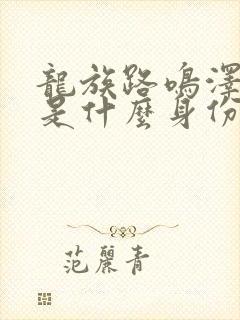 龍族路鳴澤
是什麼身份
范麗青